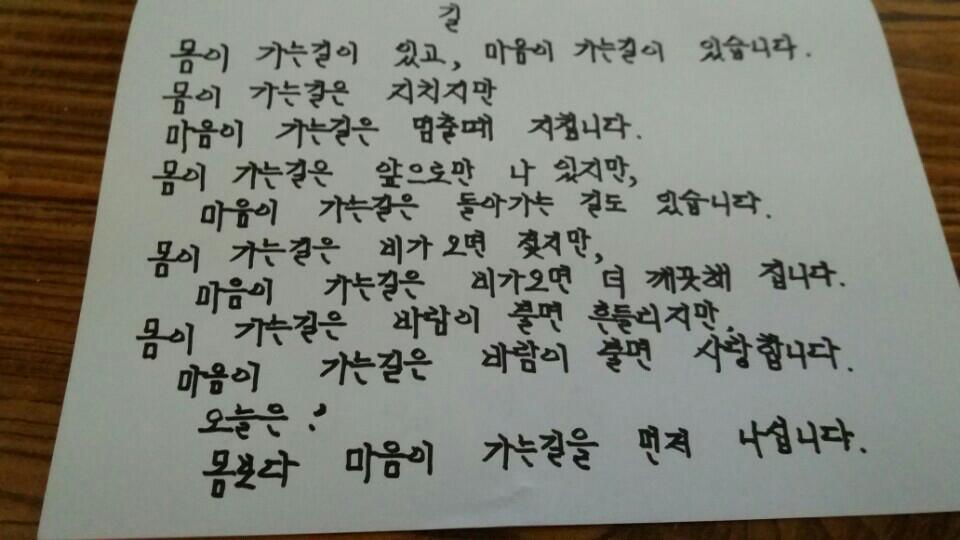 길
몸이 가는길이 있고, 마음이 가는길이 있습니다.
몸이 가는길은 지치지만
마음이 가는길은 멈출때 지칩니다.
몸이 가는길은 앞으로만 나 있지만,
마음이 가는길은 돌아가는 길도 있습니다.
몸이 가는길은 비가오면 젖지만,
마음이 가는길은 비가오면 더 깨끗해 집니다.
몸이 가는길은 바람이 불면 흔들리지만,
마음이 가는길은 바람이 불면 사랑합니다.
오늘은?
몸보다 마음이 가는길을 먼저 나섭니다.